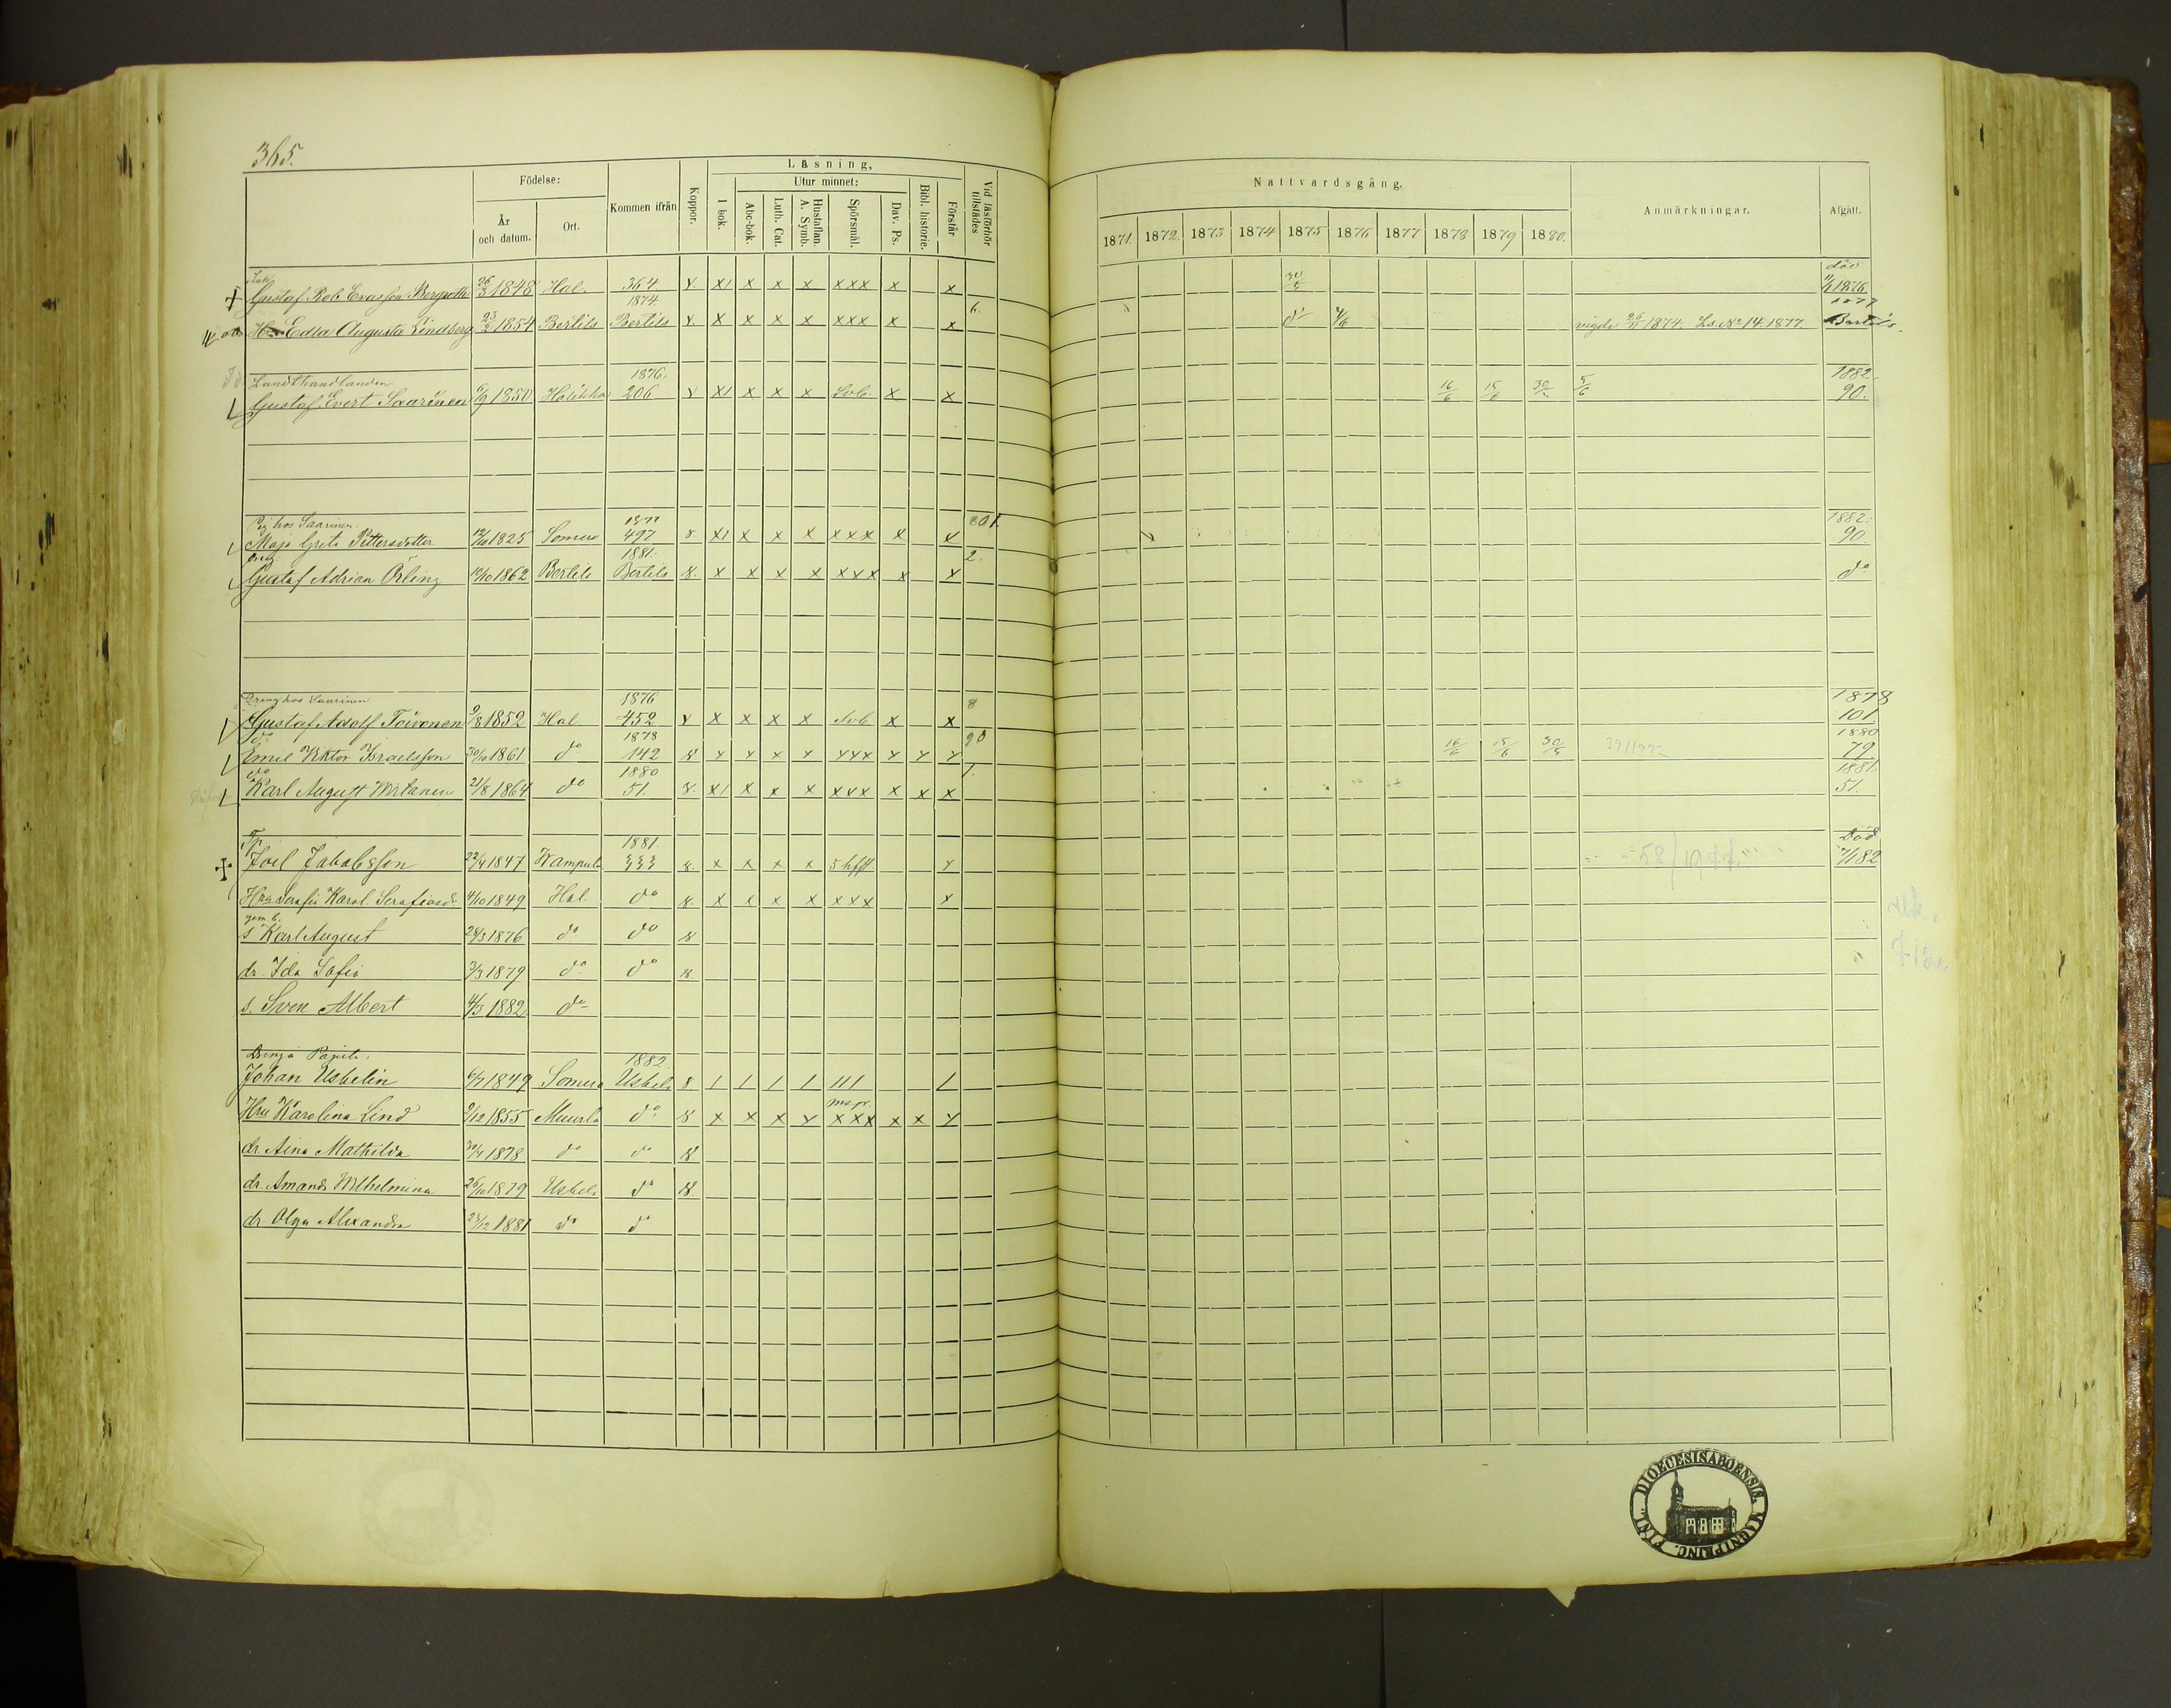 365.
Födelse:
Kommen ifrån
Koppor.
Läsning,
Utur minnet:
Vid läsförhör tillstädes
Nattvardsgång.
Anmärkningar.
Afgått.
År och datum.
Ort.
I bok.
Abc-bok.
Luth. Cat.
Hustaflan. A. Symb.
Spörsmål.
Dav. Ps.
Bibl. historie.
Förstår
1871. 1872. 1873 1874 1875 1876 1877 1878 1879 1880.
död
Gustaf Rob Evasson Bergroth 26/3 1848 Hal. 364 x. x1 x x x xxx x x 30/5 1876
1874 6. 1877
Edla Augusta Lindberg 23/2 1854 Bertils Bertils x. x x x x xxx x x d° 4/6 vigda 26/11 1874. Ls. No 14. 1877. Bertils.
Landthandlanden 1876. 1882
Gustaf Evert Saarinen 6/9 1850 Halikko 206 x x1 x x x Svb. x x 16/6 15/6 30/5 5/6 90.
Pig hos Saarinen 1877 801. 1882.
Maja Greta Pettersdotter 1825 Somero 497 x. x1 x x x xxx x x 90.
Dreng 1881. 2.
Gustaf Adrian Örling 12/10 1862 Bertils Bertils x. x x x x xxx x x d°
Dreng hos Saarinen 1876 8 1878
Gustaf Adolf Toivonen 9/8 1852 Hal 452 x x x x x Svb x x 101
d° 1878 90 1880
Emil Viktor Israelsson 30/10 1861 d° 142 x x x x x xxx x x x 16/6 15/6 30/5 79
d° 1880 1. 1881.
Karl August Wirtanen 21/8 1864 d° 51. x. x1 x x x xxx x x x 51.
1881. Död
Joel Jakobsson 22/4 1847 333 x. x x x x x 7/1 82
Hru Serafia Karol. Serafinsd. 4/10 1849 Hal. d° x. x x x x xxx x
s Karl August 28/3 1876 d° d° x
dr Ida Sofia 3/3 1879 d° d° x
s. Sven Albert 4/3 1882 d°
1882.
Johan Uskelin 6/7 1849 Somero Uskela x 1 1 1 1 111 1
Hru Karolina Lind 9/12 1855 Muurla d° x x x x x xxx x x x
dr Aina Mathilda 30/4 1878 d° d° x
dr Amanda Wilhelmina 26/10 1879 Uskela d° x
dr Olga Alexandra 23/12 1881 d° d°
DIOECESIS ABOENSIS. MAGNI PRINC. FINL.